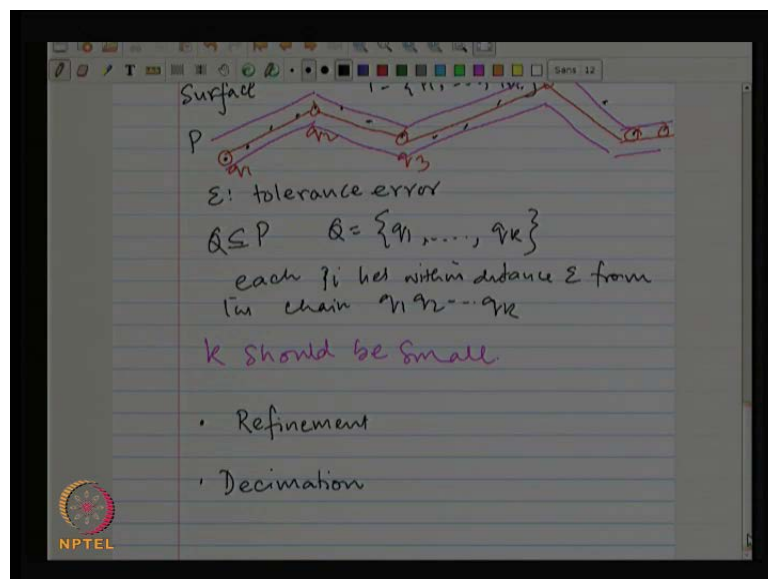 Sans 12
Surface
P
q1 q2 q3
ε: tolerance error
Q ⊆ P Q = {q1, ...., qk}
each lies within distance ε from
chain q1 q2 --- qk
k should be small.
· Refinement
· Decimation
NPTEL